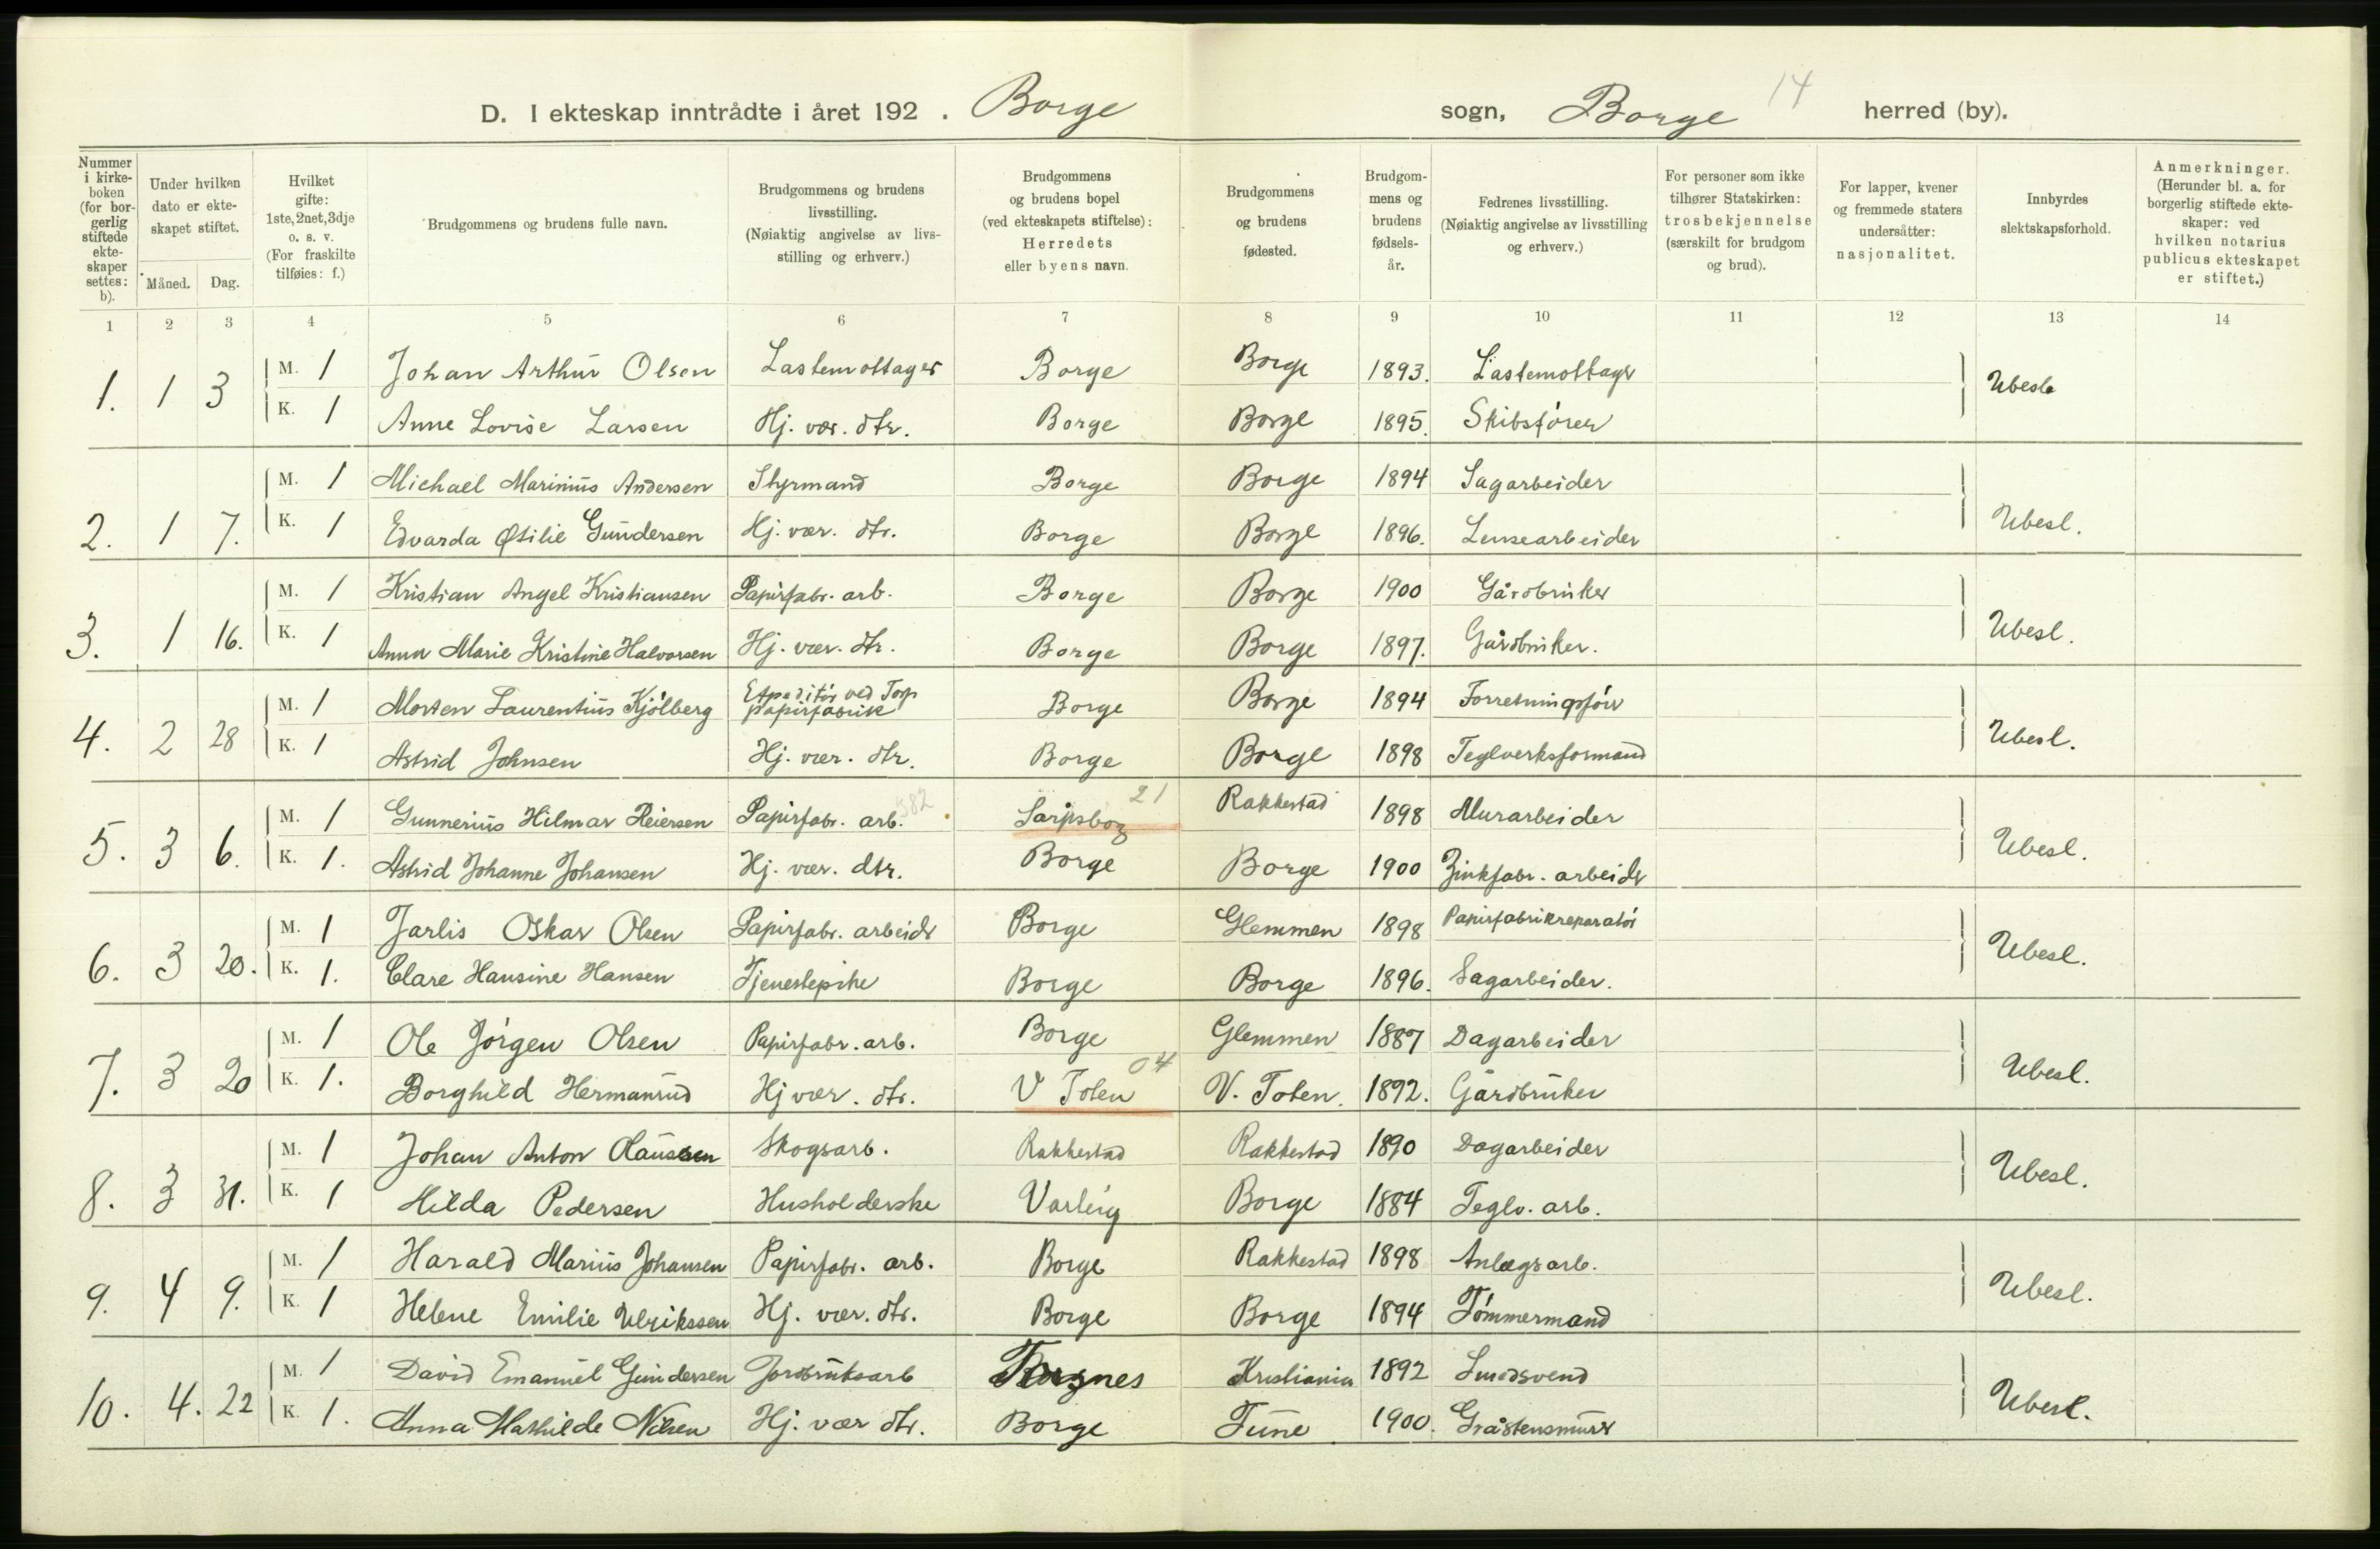 14
D. I ekteskap inntrådte i året 192 . Borge sogn, Borge herred (by).
Nummer i kirkeboken (for borgerlig stiftede ekteskaper settes: b).
Under hvilken dato er ekteskapet stiftet.
Måned. Dag.
Hvilket gifte: 1ste, 2net, 3dje o. s. v. (For fraskilte tilføies: f.)
Brudgommens og brudens fulle navn.
Brudgommens og brudens livsstilling. (Nøiaktig angivelse av livsstilling og erhverv.)
Brudgommens og brudens bopel (ved ekteskapets stiftelse): Herredets eller byens navn.
Brudgommens og brudens fødested.
Brudgommens og brudens fødselsår.
Fedrenes livsstilling. (Nøiaktig angivelse av livsstilling og erhverv.)
For personer som ikke tilhører Statskirken: trosbekjennelse (særskilt for brudgom og brud).
For lapper, kvener og fremmede staters undersåtter: nasjonalitet.
Innbyrdes slektskapsforhold.
Anmerkninger. (Herunder bl. a. for borgerlig stiftede ekteskaper: ved hvilken notarius publicus ekteskapet er stiftet.)
1 2 3 4 5 6 7 8 9 10 11 12 13 14
1. 1 3 M. 1 Johan Arthur Olsen Lastemottager Borge Borge 1893. Lastemottager Ubesl.
K. 1 Anne Lovise Larsen Hj. vær. dtr. Borge Borge 1895. Skibsfører
2. 1 7. M. 1 Michael Marinius Andersen Styrmand Borge Borge 1894 Sagarbeider Ubesl.
K. 1 Edvarda Otilie Gundersen Hj. vær. dtr. Borge Borge 1896. Lensearbeider
3. 1 16. M. 1 Kristian Angel Kristiansen Papirfabr. arb. Borge Borge 1900 Gårdbruker Ubesl.
K. 1 Anna Marie Kristine Halvorsen Hj. vær. dtr. Borge Borge 1897. Gårdbruker.
4. 2 28 M. 1 Morten Laurentius Kjølberg Expeditør ved Torp papirfabrik Borge Borge 1894 Forretningsfør Ubesl.
K. 1 Astrid Johnsen Hj. vær. dtr. Borge Borge 1898 Teglverksformand
5. 3 6. M. 1 Gunnerius Hilmar Reiersen Papirfabr. arb. 382 Sarpsborg 21 Rakkestad 1898 Murarbeider Ubesl.
K. 1. Astrid Johanne Johansen Hj. vær. dtr. Borge Borge 1900 Zinkfabr. arbeider
6. 3 20. M. 1 Jarlis Oskar Olsen Papirfabr. arbeider Borge Glemmen 1898 Papirfabrikreparatør Ubesl.
K. 1. Clare Hansine Hansen Tjenestepike Borge Borge 1896. Sagarbeider.
7. 3 20 M. 1 Ole Jørgen Olsen Papirfabr. arb. Borge Glemmen 1887 Dagarbeider Ubesl.
K. 1. Borghild Hermanrud Hj vær. dtr. V Toten 04 V. Toten. 1892. Gårdbruker
8. 3 31. M. 1 Johan Anton Claussen Skogsarb. Rakkestad Rakkestad 1890 Dagarbeider Ubesl.
K. 1 Hilda Pedersen Husholderske Varteig Borge 1884 Teglv. arb.
9. 4 9. M. 1 Harald Marius Johansen Papirfabr. arb. Borge Rakkestad 1898 Anlægsarb. Ubesl.
K. 1 Helene Emilie Ulrikssen Hj. vær. dtr. Borge Borge 1894 Tømmermand
10. 4. 22 M. 1 David Emanuel Gundersen Jordbruksarb Kristiania 1892 Smedsvend Ubesl.
K. 1. Anna Mathilde Nilsen Hj. vær dtr. Borge Tune 1900. Gråstensmurer